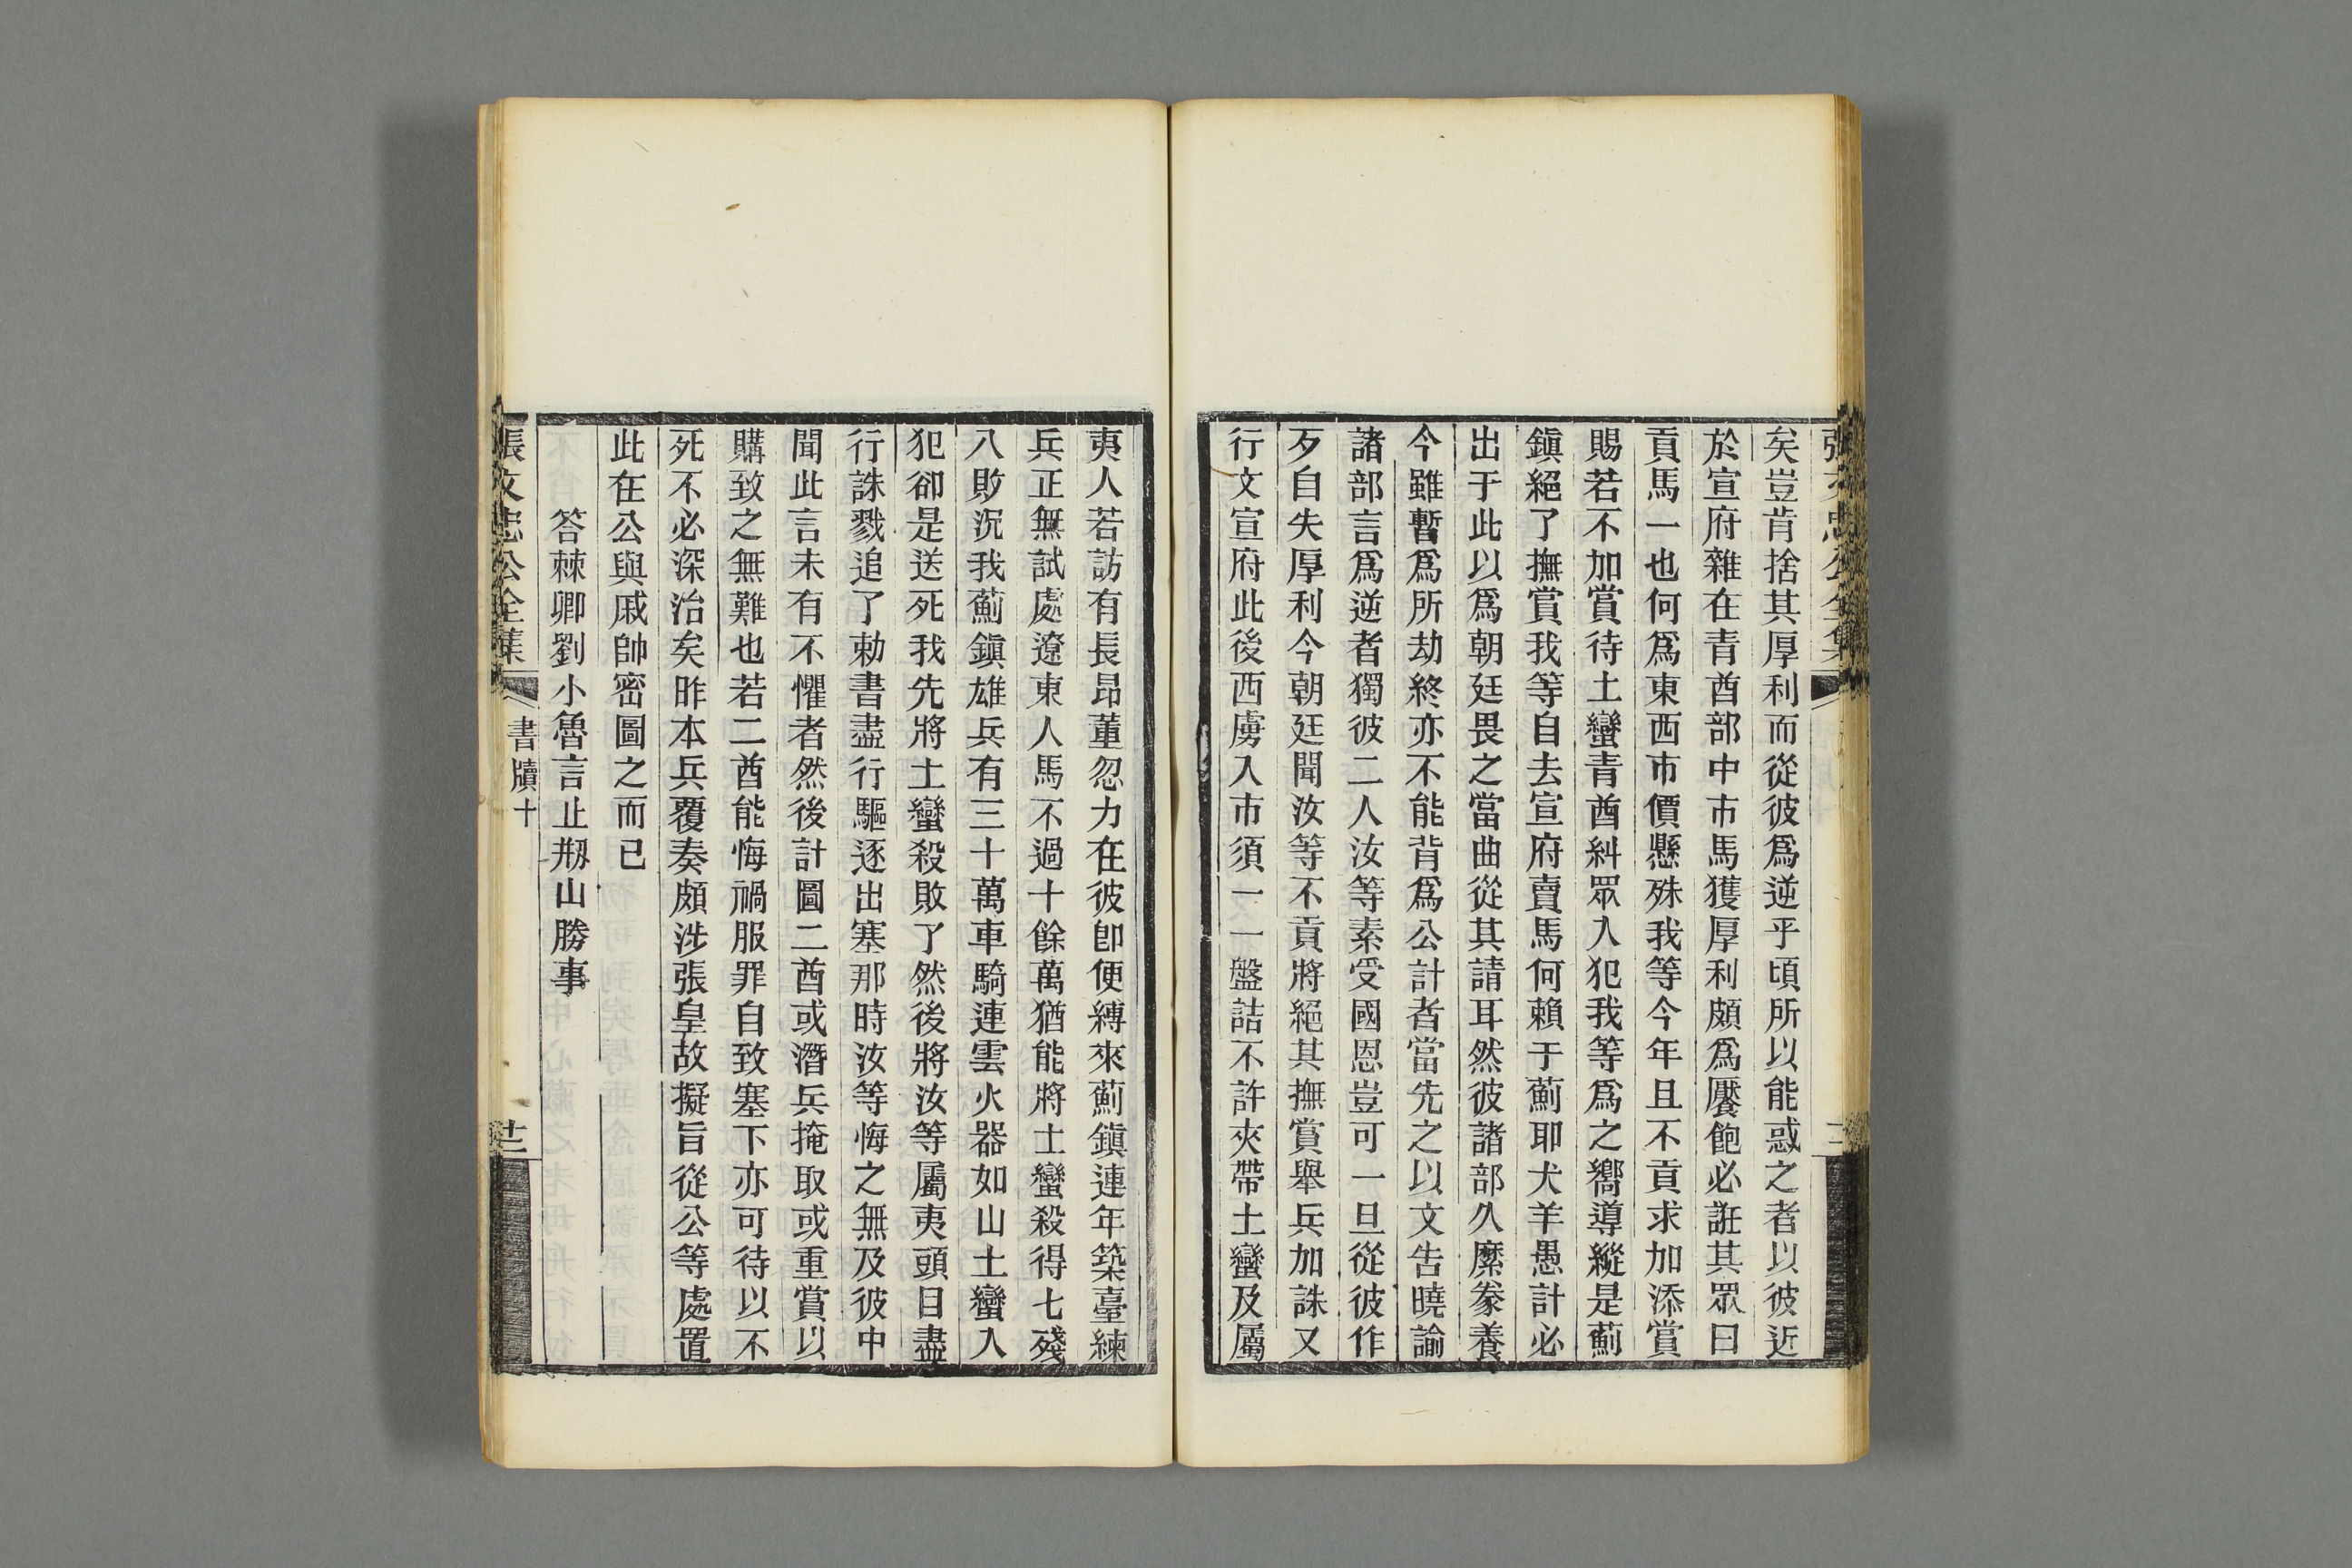 張文忠公全集
矣豈肯捨其厚利而從彼爲逆乎頃所以能惑之者以彼近
於宣府雜在青酋部中市馬獲厚利頗爲饜飽必誑其眾曰
貢馬一也何爲東西市價懸殊我等今年且不貢求加添賞
賜若不加賞待土蠻青酋糾眾入犯我等爲之嚮導縱是薊
鎭絕了撫賞我等自去宣府賣馬何賴于薊耶犬羊愚計必
出于此以爲朝廷畏之當曲從其請耳然彼諸部久縻豢養
今雖暫爲所劫終亦不能背爲公計者當先之以文告曉諭
諸部言爲逆者獨彼二人汝等素受國恩豈可一旦從彼作
歹自失厚利今朝廷聞汝等不貢將絕其撫賞舉兵加誅又
行文宣府此後西虜入市須一一盤詰不許夾帶土蠻及屬
夷人若訪有長昂董忽力在彼卽便縛來薊鎭連年築臺練
兵正無試處遼東人馬不過十餘萬猶能將土蠻殺得七殘
八敗況我薊鎭雄兵有三十萬車騎連雲火器如山土蠻入
犯卻是送死我先將土蠻殺敗了然後將汝等屬夷頭目盡
行誅戮追了勅書盡行驅逐出塞那時汝等悔之無及彼中
聞此言未有不懼者然後計圖二酋或潛兵掩取或重賞以
購致之無難也若二酋能悔禍服罪自致塞下亦可待以不
死不必深治矣昨本兵覆奏頗涉張皇故擬旨從公等處置
此在公與戚帥密圖之而已
答棘卿劉小魯言止剏山勝事
張文忠公全集
書牘十
廿二